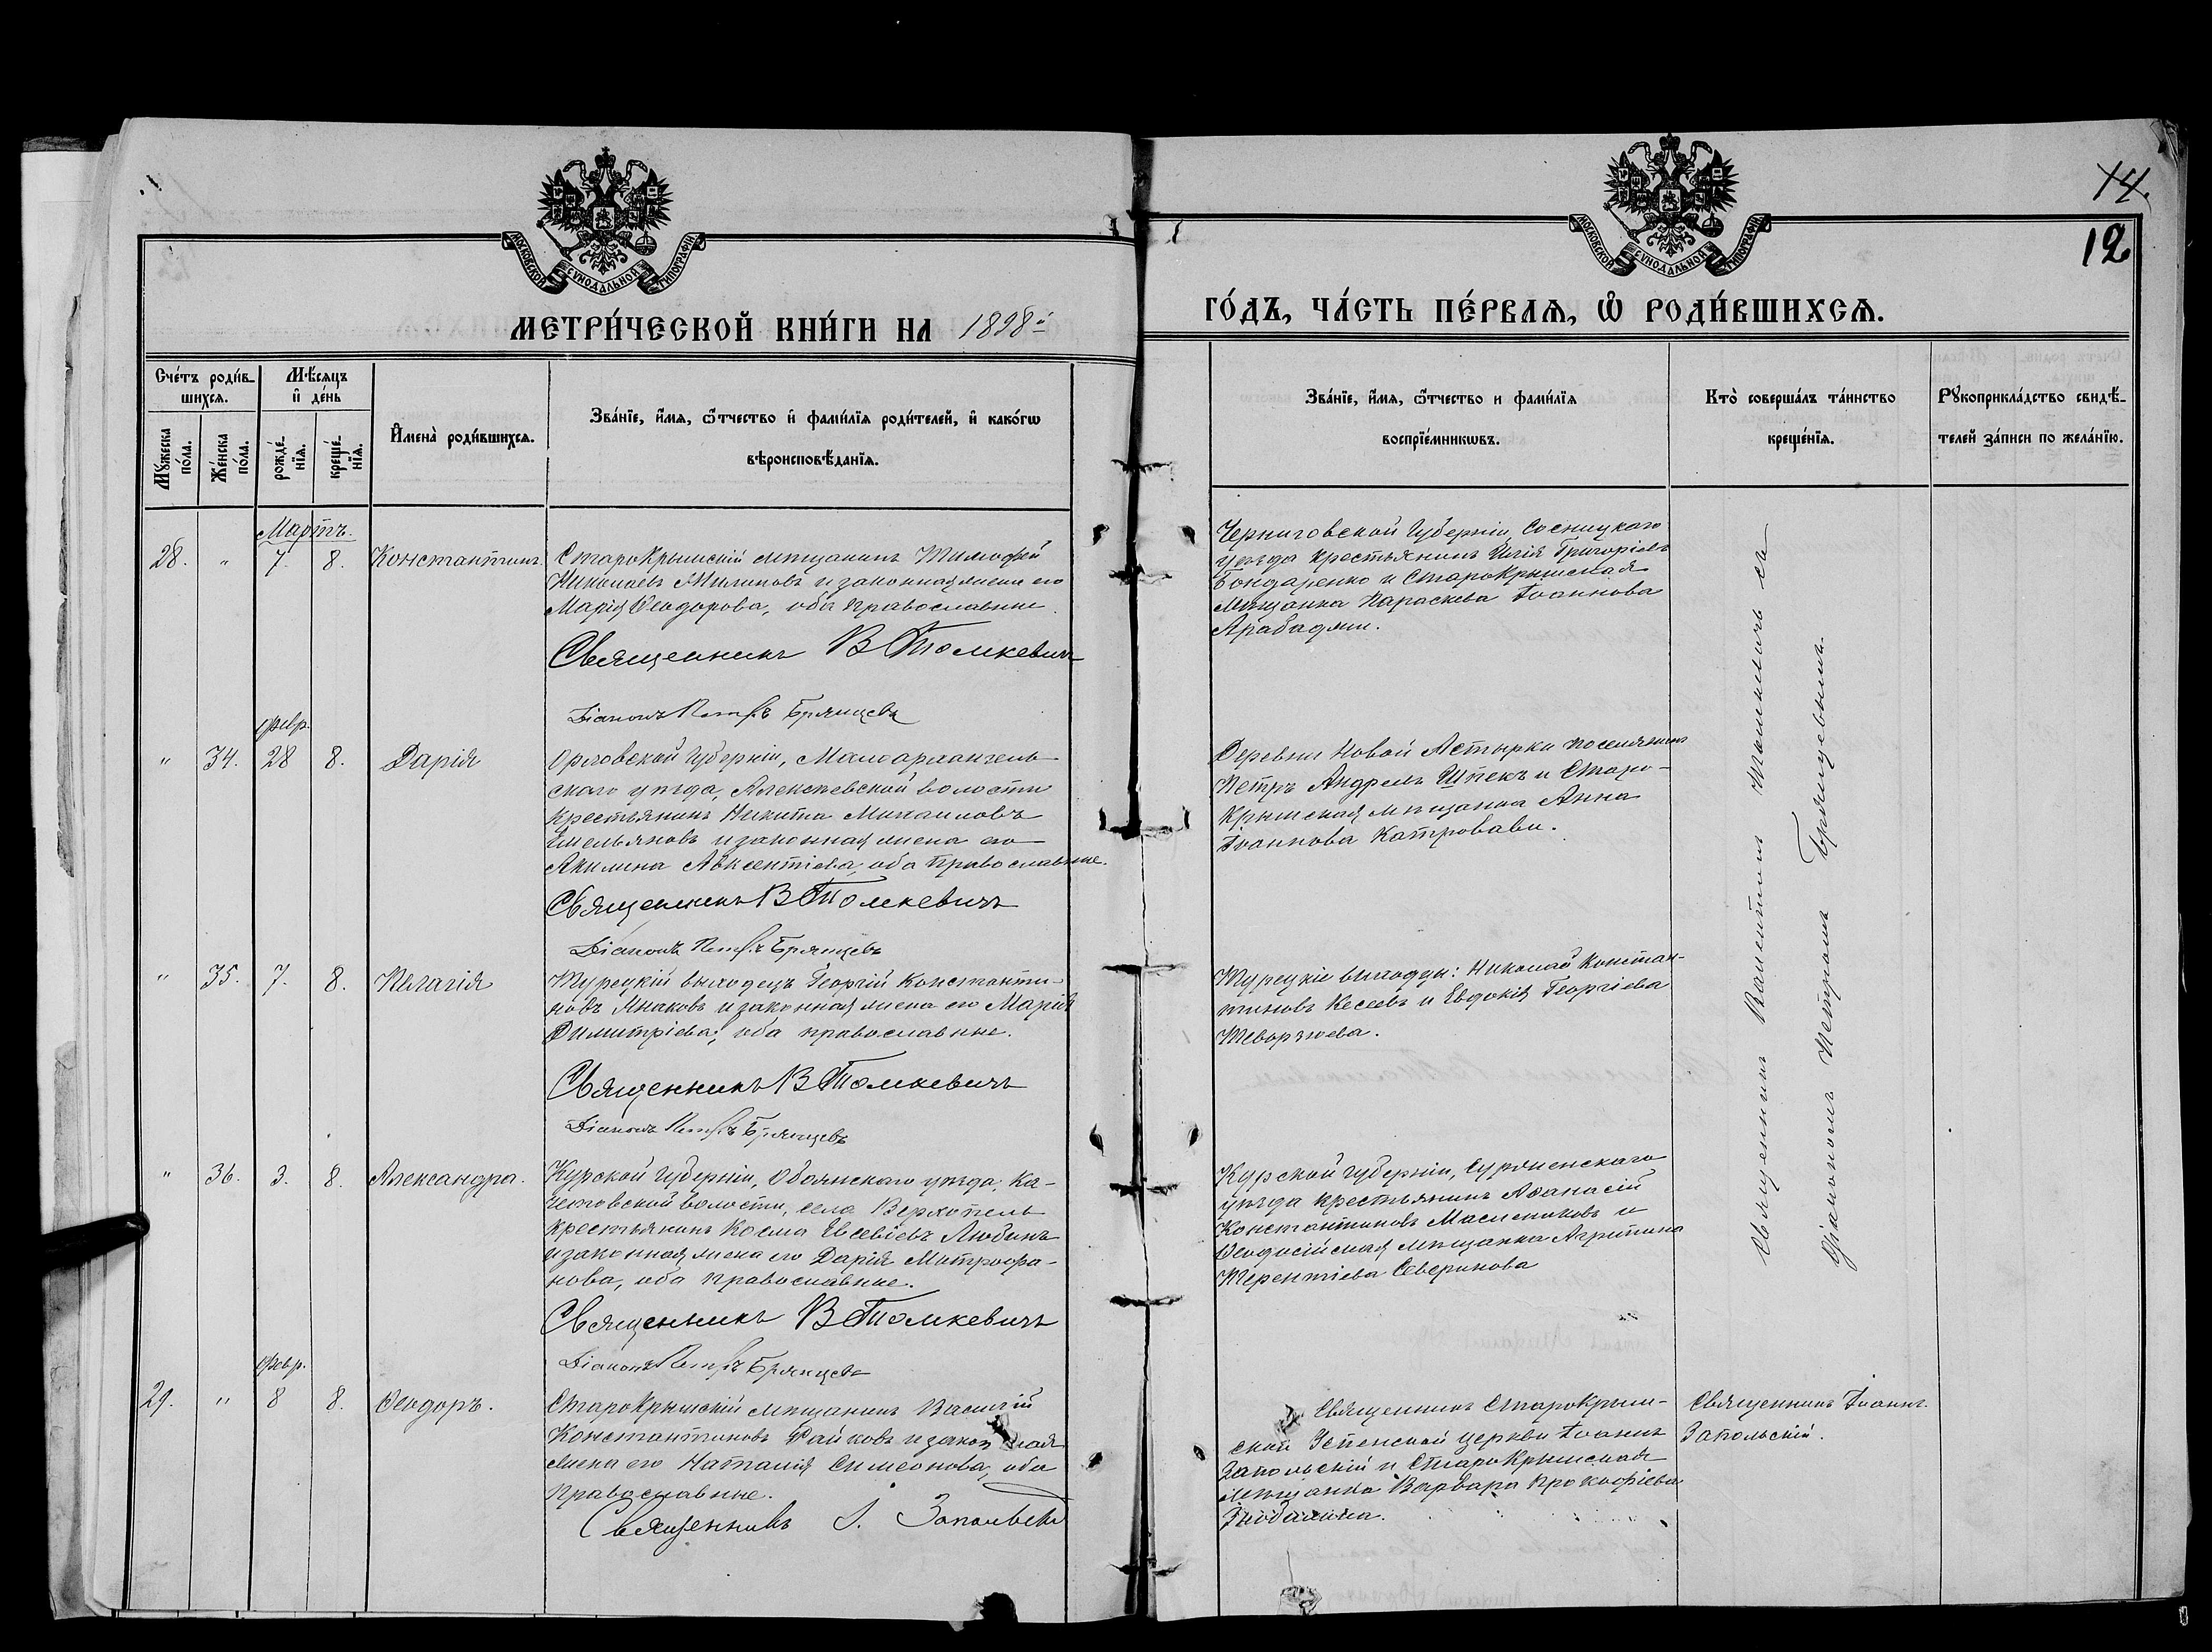 14.
12
МОСКОВСКОЙ СУНОДАЛЬНОЙ ТИПОГРАФІИ
МОСКОВСКОЙ СУНОДАЛЬНОЙ ТИПОГРАФІИ
МЕТРИ́ЧЕСКОЙ КНИ́ГИ НА 1898й
ГО́ДЪ, ЧА́СТЬ ПЕ́РВАѦ, Ѡ҆ РОДИ́ВШИХСѦ.
Сче́тъ роди́в-
шихсѧ.
Мꙋ́жеска по́ла.
Же́нска по́ла.
Мѣ́сѧцъ
и҆ де́нь
рожде́-нїѧ.
креще́-нїѧ.
И҆мена̀ роди́вшихсѧ.
Зва́нїе, и҆́мѧ, ѻ҆́тчество и҆ фами́лїѧ роди́телей, и҆ како́гѡ
вѣроисповѣ́данїѧ.
Зва́нїе, и҆́мѧ, ѻ҆́тчество и фами́лїѧ
воспрїе́мникѡвъ.
Кто̀ соверша́лъ та́инство
креще́нїѧ.
Рꙋкоприкла́дство свидѣ́-
телей за́писи по жела́нїю.
Мартъ.
28. " 7. 8. Константинъ.
Старокрымскій мѣщанинъ Тимофей
Николаевъ Милиновъ и законная жена его
Марія Ѳеодорова, оба православные.
Священникъ В Томкевичъ
Діаконъ Петръ Брянцевъ
Черниговской Губерніи, Сосницкаго
уѣзда крестьянинъ Илія Григоріевъ
Бондаренко и Старокрымская
мѣщанка Параскева Іоаннова
Арабаджи.
февр.
" 34. 28 8. Дарія
Орловской Губерніи, Малоархангель-
скаго уѣзда, Алексѣевской волости
крестьянинъ Никита Михаиловъ
Емельяновъ и законная жена его
Акилина Авксентіева, оба православные.
Священникъ В Томкевичъ
Діаконъ Петръ Брянцевъ
Деревни Новой Астырки поселянинъ
Петръ Андреевъ Шпекъ и Старо-
Крымская мѣщанка Анна
Іоаннова Катровави.
" 35. 7. 8. Пелагія
Турецкій выходецъ Георгій Константи-
новъ Янаковъ и законная жена его Марія
Димитріева, оба православные.
Священникъ В Томкевичъ
Діаконъ Петръ Брянцевъ
Турецкіе выходцы: Николай Констан-
тиновъ Кесеевъ и Евдокія Георгіева
" 36. 3. 8. Александра.
Курской Губерніи, Обоянскаго уѣзда, Ка-
четовской волости, села Верхопель
крестьянинъ Косма Евсевіевъ Любинъ
и законная жена его Дарія Митрофа-
нова, оба православные.
Священникъ В Томкевичъ
Діаконъ Петръ Брянцевъ
Курской Губерніи, Суджанскаго
уѣзда крестьянинъ Аѳанасій
Константиновъ Масленниковъ и
Ѳеодосійская мѣщанка Агрипина
Терентіева Северинова
Священникъ Валентинъ Томкевичъ съ
Діакономъ Петромъ Брянцевымъ.
февр.
29. " 8 8. Ѳеодоръ.
Старокрымскій мѣщанинъ Василій
Константиновъ Райковъ и законная
жена его Наталія Симеонова, оба
православные.
Священникъ І. Запольскій
Священникъ Старокрым-
ской Успенской церкви Іоаннъ
Запольскій и Старокрымская
мѣщанка Варвара Прокофіева
Священникъ Іоаннъ
Запольскій.